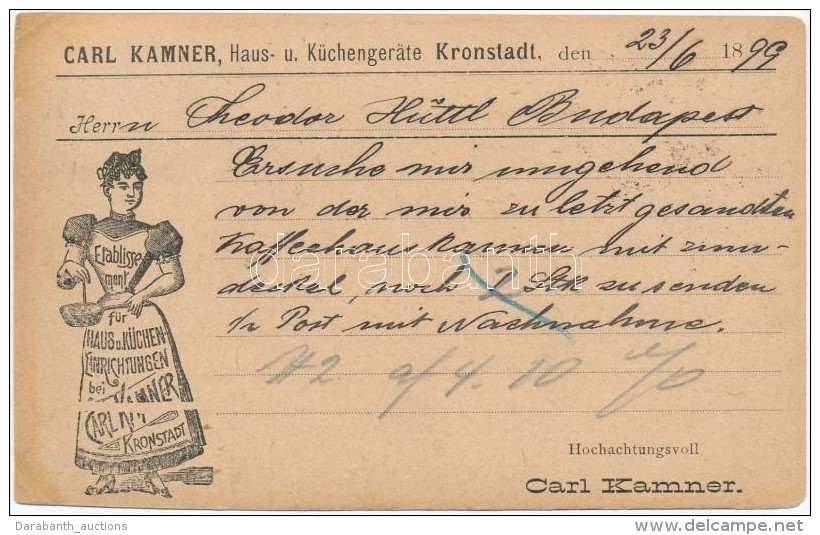 CARL KAMNER, Haus- u. Küchengeräte Kronstadt, den 23/6 1899
Herrn Theodor Hüttl Budapest
Ersuche mir umgehend
von der mir zuletzt gesandten
Kaffeehauskannen mit zinn-
deckel, noch 2 Stk zu senden
Pr Post mit Nachnahme.
A2 4. 10
Etablisse-
ment
für
HAUS u. KÜCHEN
EINRICHTUNGEN
bei
KAMNER
CARL
KRONSTADT
Hochachtungsvoll
Carl Kamner.
darabanth
Darabanth_auctions
delcampe.net